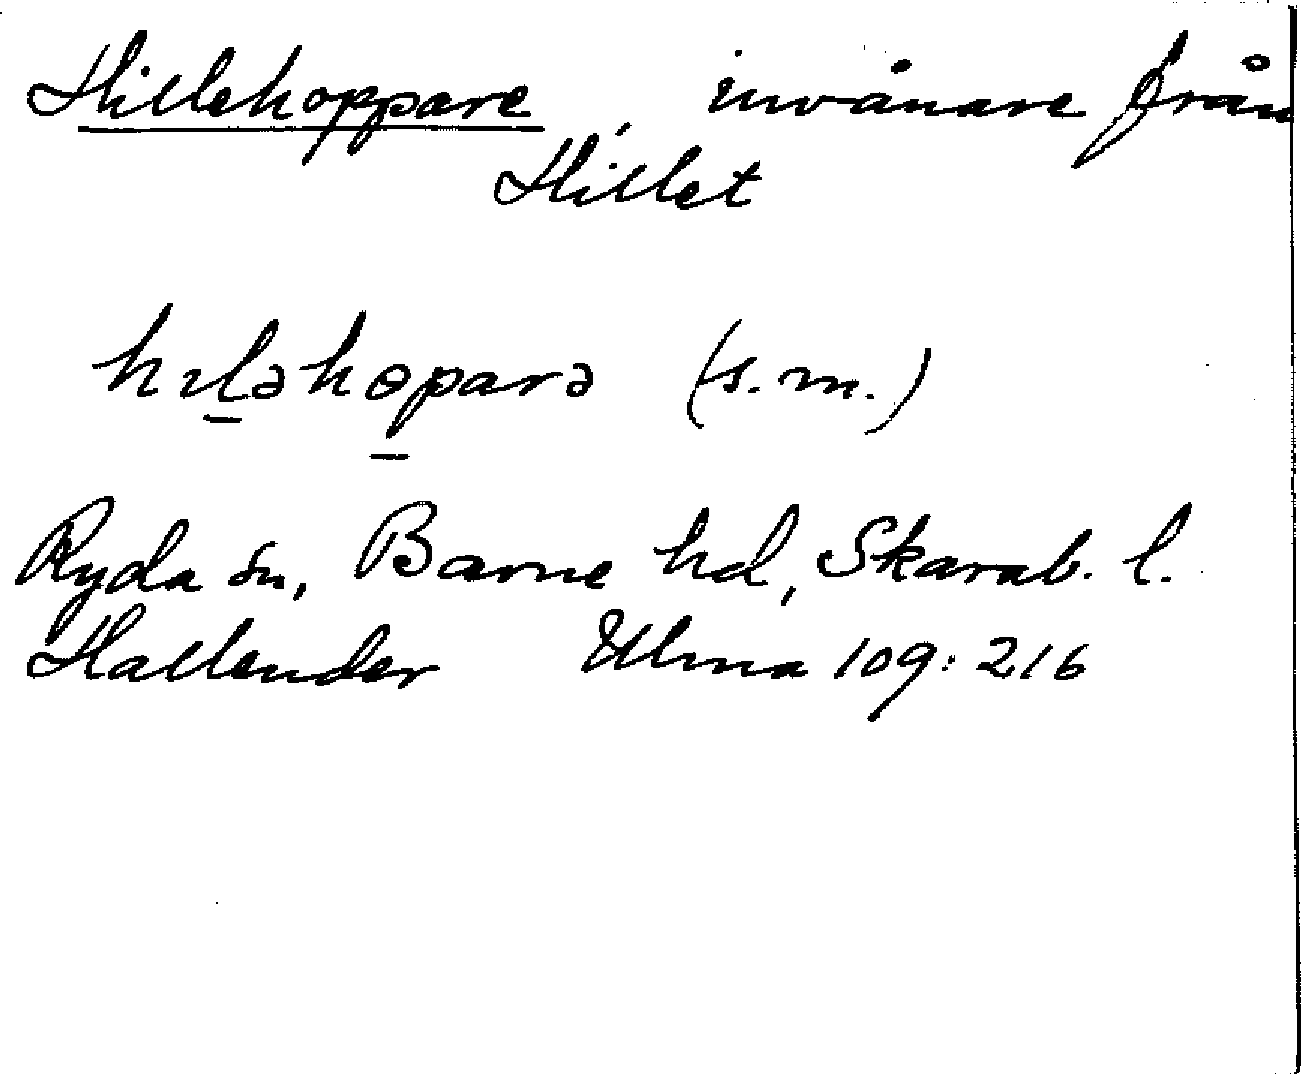 Hillehoppare, invånare från
Hillet
hıl̲əhɵp̲arə (s.m.)
Ryda sn, Barne hd, Skarab. l.
Hallender Ulma 109:216